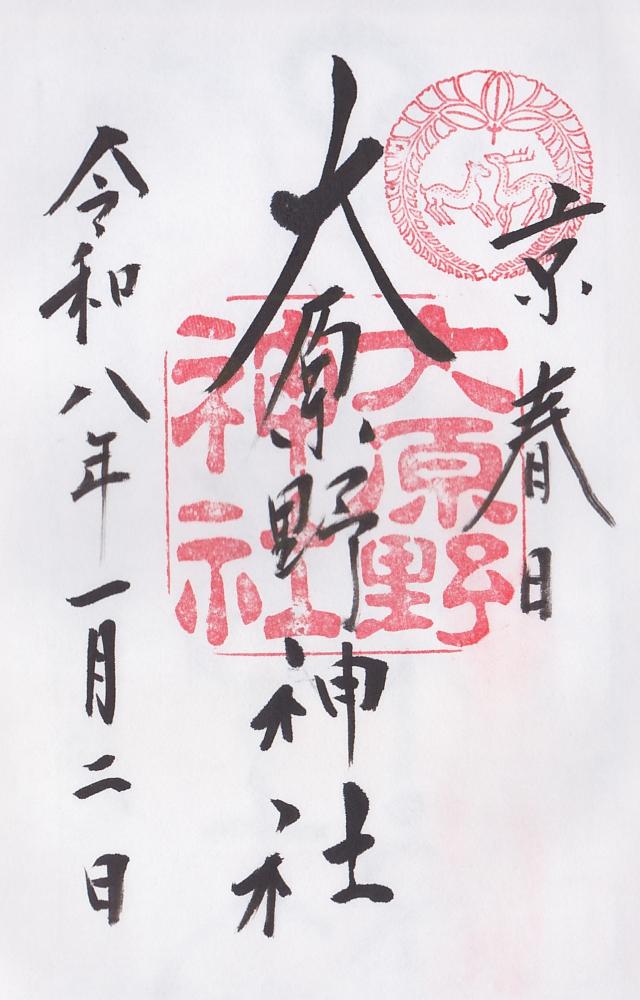 京春日
大原野神社
令和八年一月二日
大原野
神社